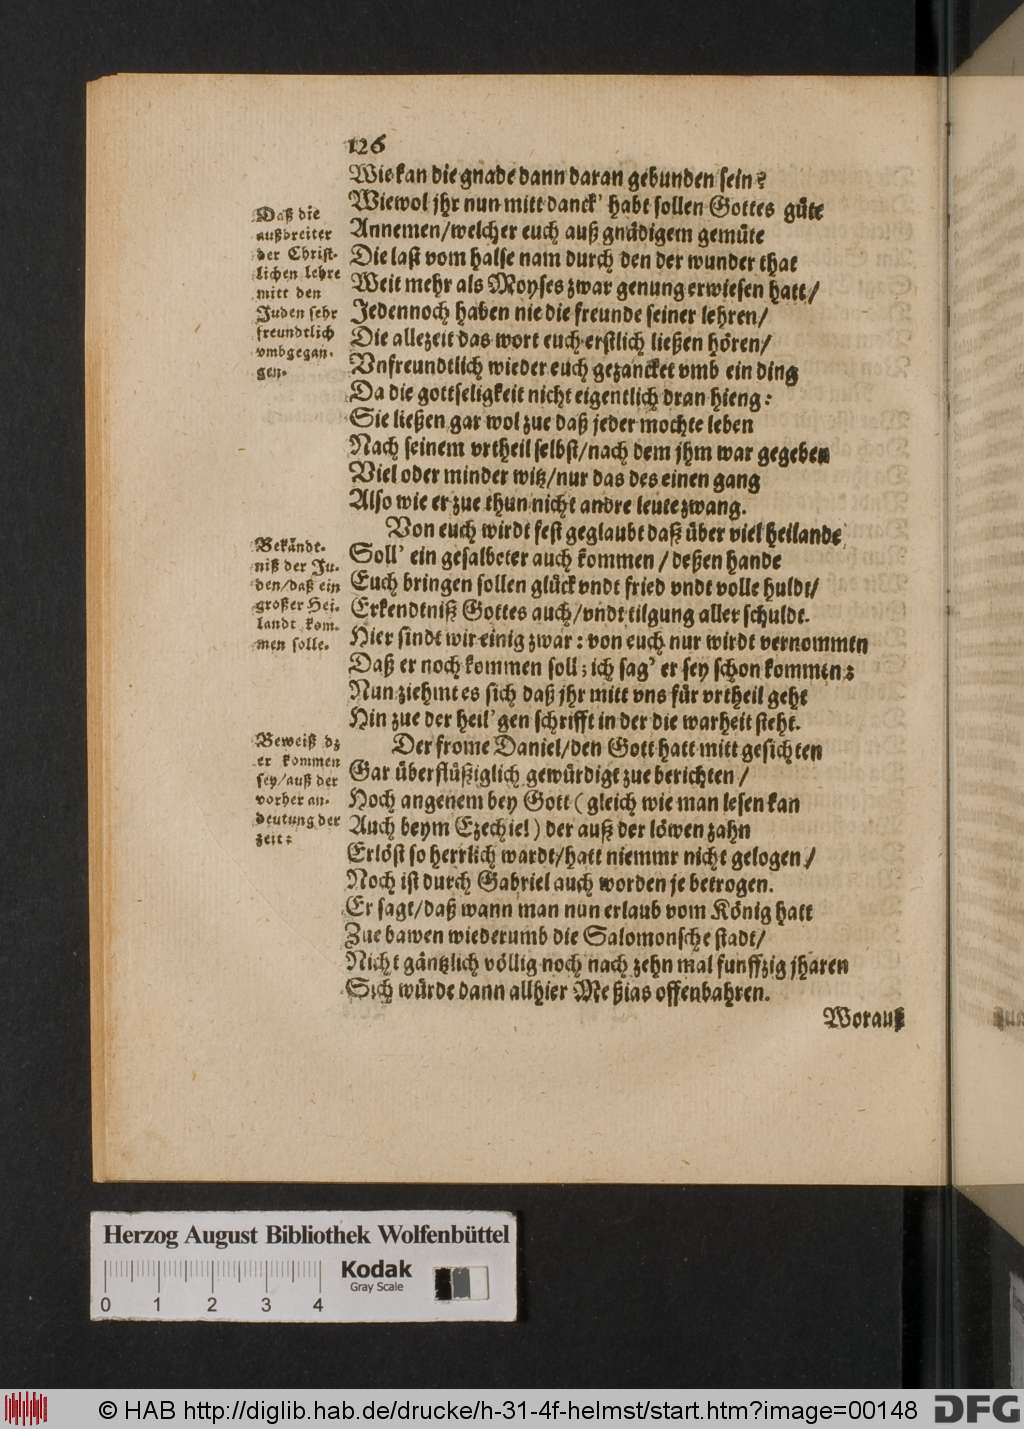 126
Wie kan die gnade dann daran gebunden sein?
Wiewol jhr nun mitt danck' habt sollen Gottes güte
Annemen/welcher euch auß gnädigem gemüte
Die last vom halse nam durch den der wunder that
Weit mehr als Moyses zwar genung erwiesen hatt/
Jedennoch haben nie die freunde seiner lehren/
Die allezeit das wort euch erstlich ließen hören/
Vnfreundtlich wieder euch gezancket vmb ein ding
Da die gottseligkeit nicht eigentlich dran hieng:
Sie ließen gar wol zue daß jeder mochte leben
Nach seinem vrtheil selbst/nach dem jhm war gegeben
Viel oder minder witz/nur das des einen gang
Also wie er zue thun nicht andre leute zwang.
Daß die
außbreiter
der Christ-
lichen lehre
mitt den
Juden sehr
freundtlich
vmbgegan-
gen.
Von euch wirdt fest geglaubt daß über viel heilande
Soll' ein gesalbeter auch kommen / deßen hande
Euch bringen sollen glück vndt fried vndt volle huldt/
Erkendtniß Gottes auch/vndt tilgung aller schuldt.
Hier sindt wir einig zwar: von euch nur wirdt vernommen
Daß er noch kommen soll; ich sag' er sey schon kommen:
Nun ziehmt es sich daß jhr mitt vns für vrtheil geht
Hin zue der heil'gen schrifft in der die warheit steht.
Bekändt-
niß der Ju-
den/daß ein
großer Hei-
landt kom-
men solle.
Der frome Daniel/den Gott hatt mitt gesichten
Gar überflüßiglich gewürdigt zue berichten /
Hoch angenem bey Gott (gleich wie man lesen kan
Auch beym Ezechiel) der auß der löwen zahn
Erlöst so herrlich wardt/hatt niemmr nicht gelogen/
Noch ist durch Gabriel auch worden je betrogen.
Er sagt/daß wann man nun erlaub vom König hatt
Zue bawen wiederumb die Salomonsche stadt/
Nicht gäntzlich völlig noch nach zehn mal funffzig jharen
Sich würde dann allhier Meßias offenbahren.
Beweiß dz
er kommen
sey/auß der
vorher an-
deutung der
zeit:
Worauß
Herzog August Bibliothek Wolfenbüttel
Kodak
Gray Scale
0 1 2 3 4
© HAB http://diglib.hab.de/drucke/h-31-4f-helmst/start.htm?image=00148
DFG